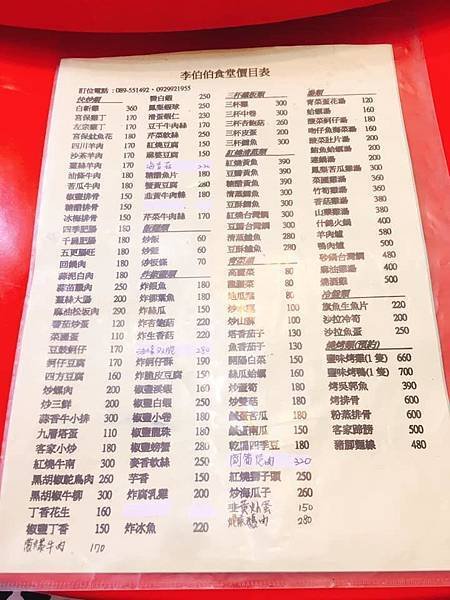 李伯伯食堂價目表
訂位電話：089-551492、0929921955
快炒類
白斬雞 360
宮保雞丁 170
左宗雞丁 170
宮保魷魚花 180
四川羊肉 170
沙茶羊肉 170
苦瓜牛肉 180
椒鹽排骨 180
糖醋排骨 180
冰梅排骨 180
四季肥腸 180
千鍋肥腸 180
五更腸旺 180
回鍋肉 180
蒜泥白肉 180
蒜苗臘肉 250
薑絲大腸 200
麻油松板肉 290
番茄炒蛋 120
菜圃蛋 110
豆鼓鮮蚵 170
蚵仔豆腐 170
四方豆腐 160
炒螺肉 200
炒三鮮 200
蒜香牛小排 300
九層塔蛋 110
客家小炒 180
紅燒牛南 300
黑胡椒鴕鳥肉 260
黑胡椒牛柳 300
丁香花生 160
椒鹽丁香 190
蔥爆牛肉 170
醬白蝦 250
鳳梨蝦球 250
滑蛋蝦仁 230
豆干牛肉絲 170
芹菜軟絲 250
紅燒豆腐 150
麻婆豆腐 150
糖醋魚片 180
蟹黃豆腐 280
韭黃牛肉絲 180
芹菜牛肉絲 170
飯麵類
炒飯 60
炒麵 60
炒板條 70
炸椒鹽類
炸蝦魚 180
炸柳葉魚 180
炸絲瓜 150
炸杏鮑菇 220
炸生香菇 220
280
炸蚵仔酥 180
炸脆皮豆腐 150
椒鹽溪蝦 160
椒鹽白蝦 250
椒鹽小卷 180
椒鹽龍珠 180
椒鹽螃蟹 280
麥香軟絲 250
芋香 150
炸腐乳雞 200
炸冰魚 220
三杯鐵板類
三杯雞 300
三杯中卷 300
三杯杏鮑菇 260
三杯皮蛋 200
三杯鯛魚 300
紅燒清蒸類
紅燒黃魚 390
豆瓣黃魚 390
糖醋黃魚 390
豆酥黃魚 390
紅燒台灣鯛 300
豆瓣台灣鯛 300
清蒸鱸魚 280
豆酥鱸魚 280
青菜類
高麗菜 80
龍鬚菜 80
地瓜葉 80
炒水蓮 100
炒山蘇 100
塔香茄子 130
魚香茄子 130
開陽白菜 150
絲瓜蛤蠣 160
炒蘆筍 180
炒雙菇 180
鹹蛋苦瓜 180
鹹蛋南瓜 150
乾扁四季豆 180
320
紅燒獅子頭 250
炒海瓜子 260
韭黃炒蛋 150
280
湯類
青菜蛋花湯 120
蛤蠣湯 160
酸菜蚵仔湯 160
吻仔魚海菜湯 160
酸菜肚片湯 200
鮑魚蛤蠣湯 350
連鍋湯 200
鳳梨苦瓜雞湯 350
菜圃雞湯 350
竹筍雞湯 350
香菇雞湯 350
山藥雞湯 350
什錦火鍋 400
羊肉爐 500
鴨肉爐 500
砂鍋台灣鯛 400
麻油雞湯 400
燒酒雞 500
冷盤類
旗魚生魚片 220
沙拉冷筍 200
沙拉魚蛋 250
燒烤類(預約)
鹽味烤雞(1隻) 660
鹽味烤鴨(1隻) 700
烤吳郭魚 390
烤排骨 600
粉蒸排骨 600
客家蹄膀 500
豬腳麵線 480